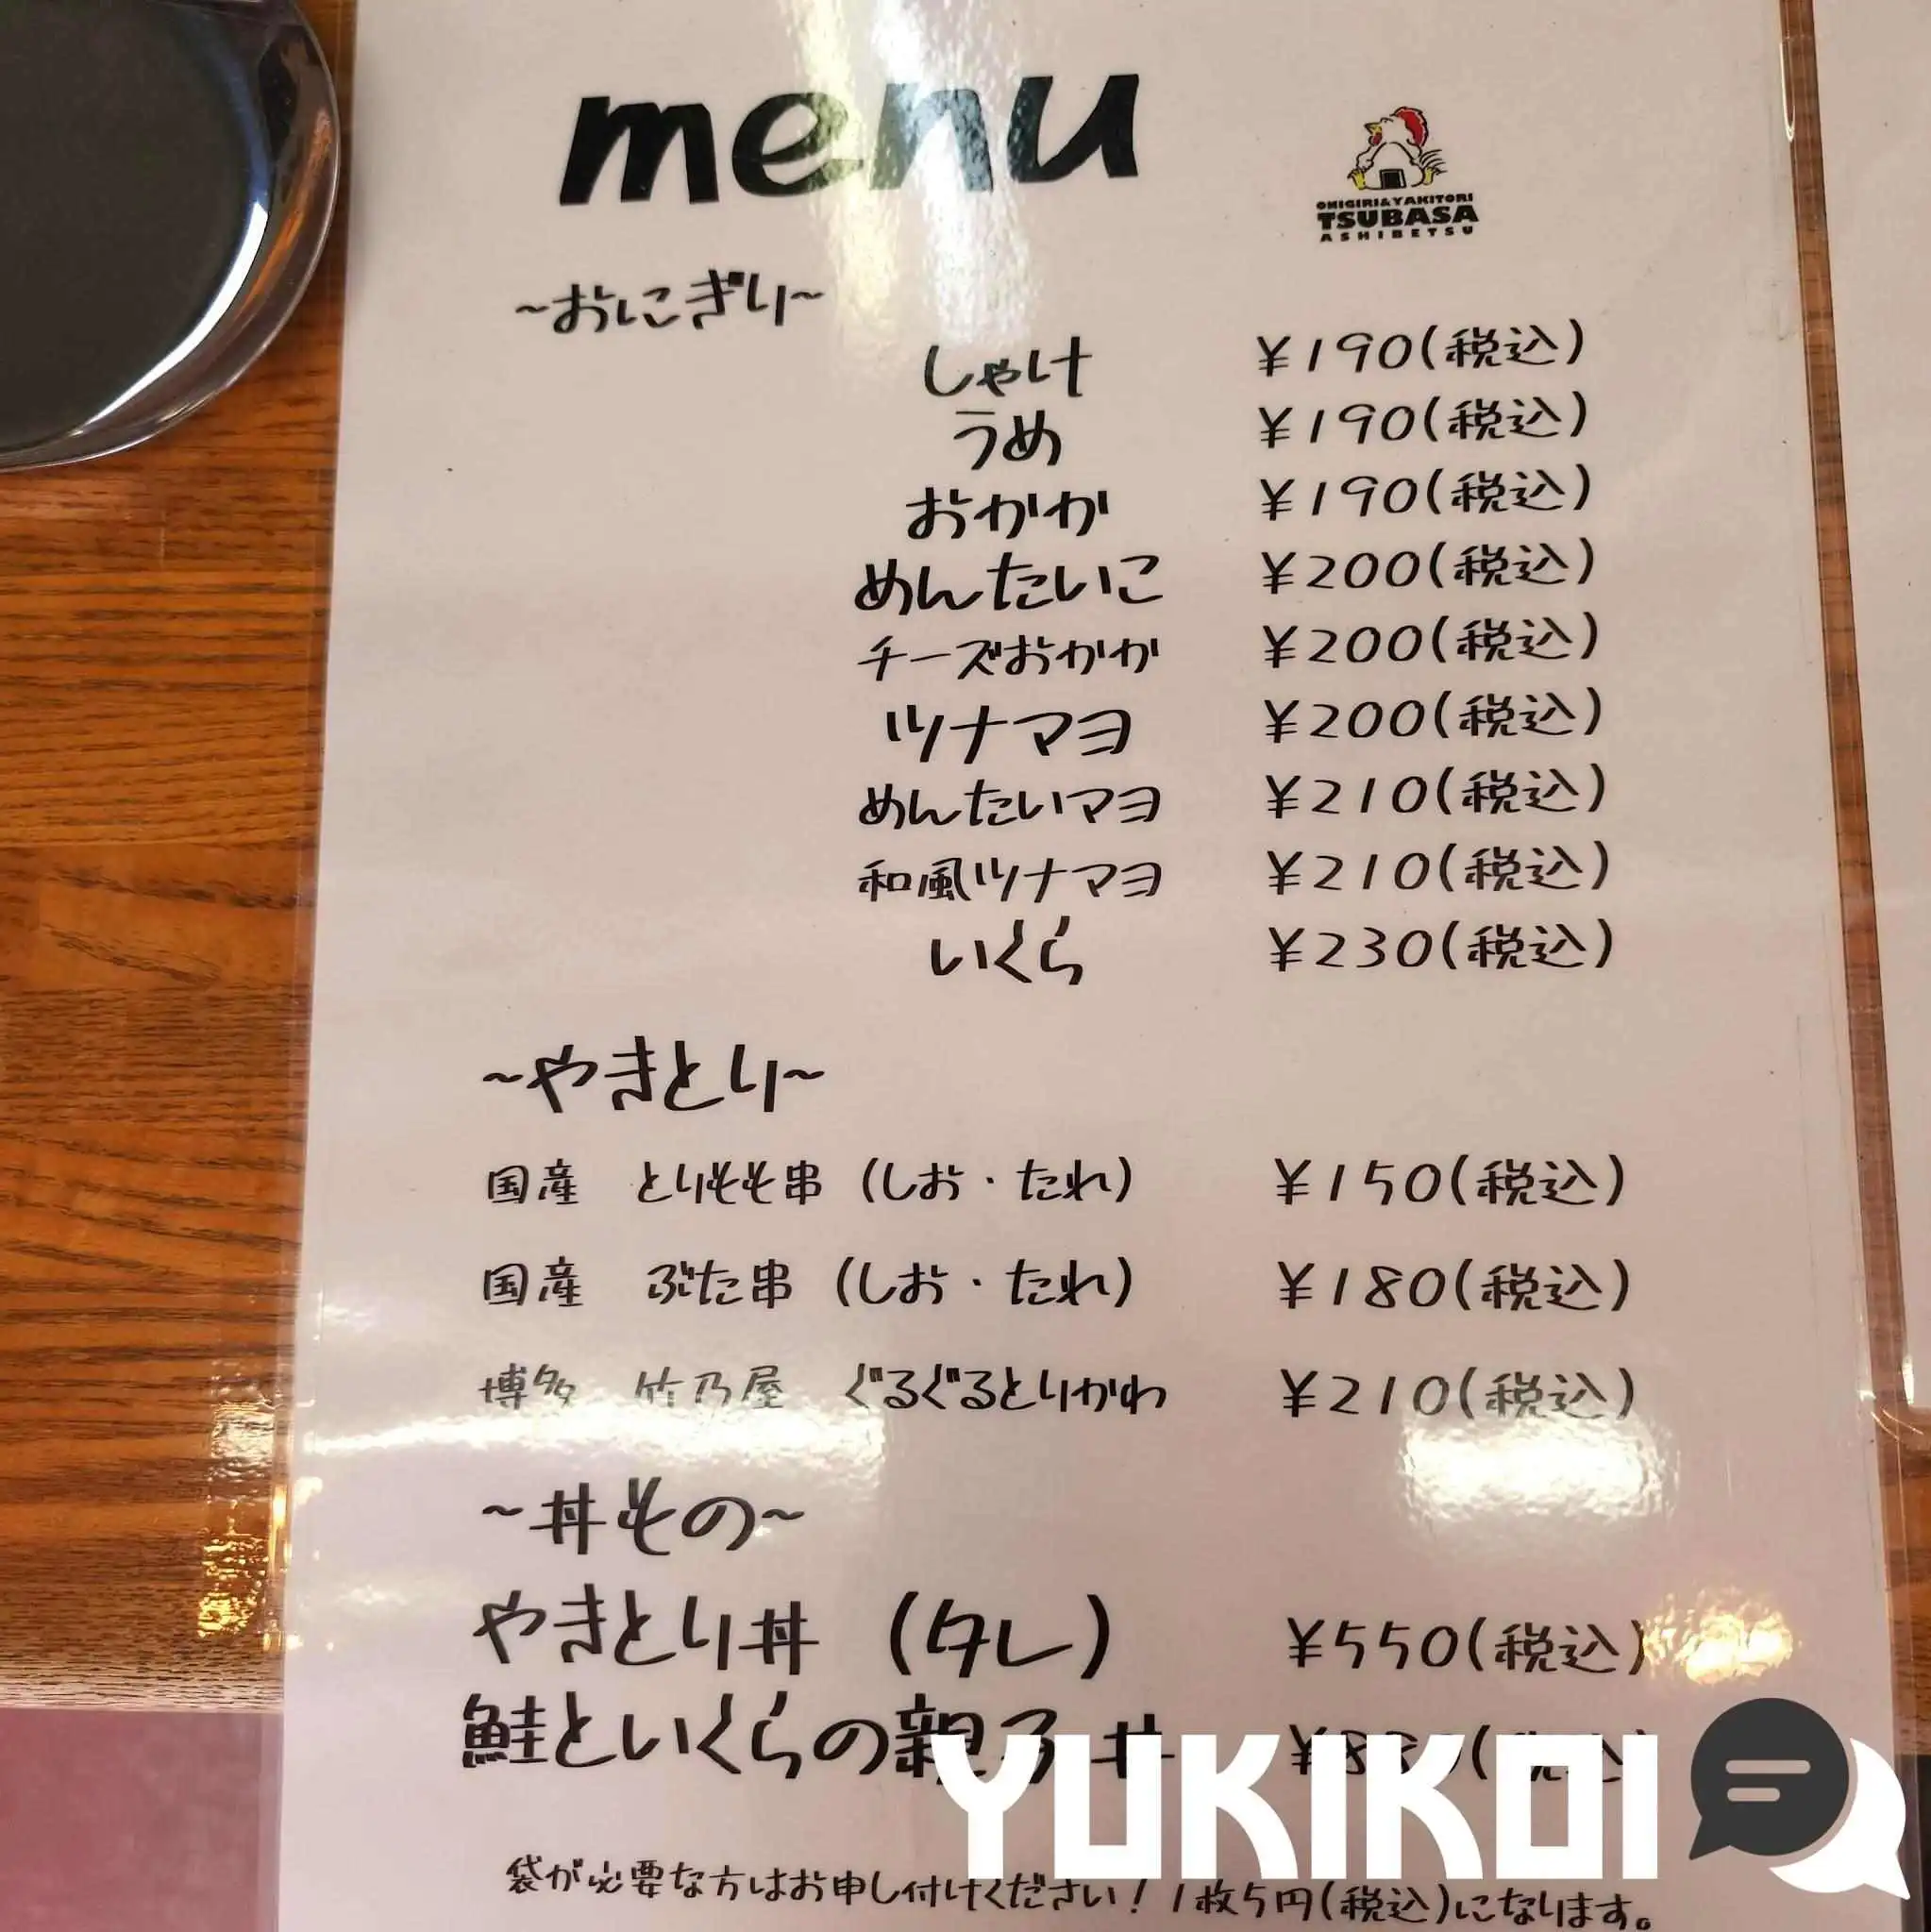 menu
ONIGIRI&YAKITORI
TSUBASA
ASHIBETSU
~おにぎり~
しゃけ ¥190(税込)
うめ ¥190(税込)
おかか ¥190(税込)
めんたいこ ¥200(税込)
チーズおかか ¥200(税込)
ツナマヨ ¥200(税込)
めんたいマヨ ¥210(税込)
和風ツナマヨ ¥210(税込)
いくら ¥230(税込)
~やきとり~
国産 とりもも串 (しお・たれ) ¥150(税込)
国産 ぶた串 (しお・たれ) ¥180(税込)
博多 竹乃屋 ぐるぐるとりかわ ¥210(税込)
~丼もの~
やきとり丼 (タレ) ¥550(税込)
鮭といくらの親子丼
YUKIKOI
袋が必要な方はお申し付けください！1枚5円(税込)になります。